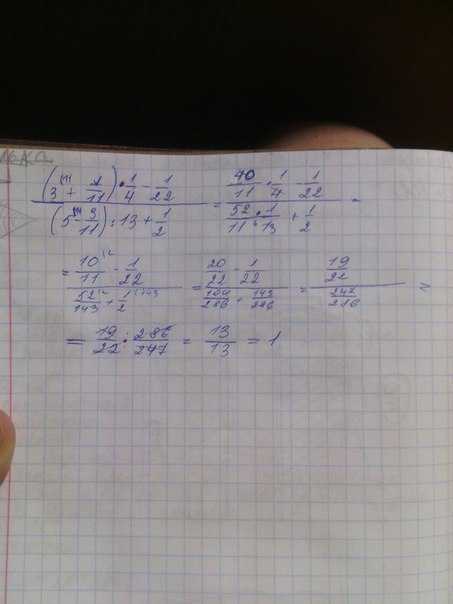 ((3 + 7/11) · 1/4 - 1/22) / ((5 - 3/11) : 13 + 1/2) = (40/11 · 1/4 - 1/22) / (52/11 · 1/13 + 1/2) =
= (10/11 - 1/22) / (52/143 + 1/2) = (20/22 - 1/22) / (104/286 + 143/286) = (19/22) / (247/286) =
= 19/22 : 286/247 = 13/13 = 1